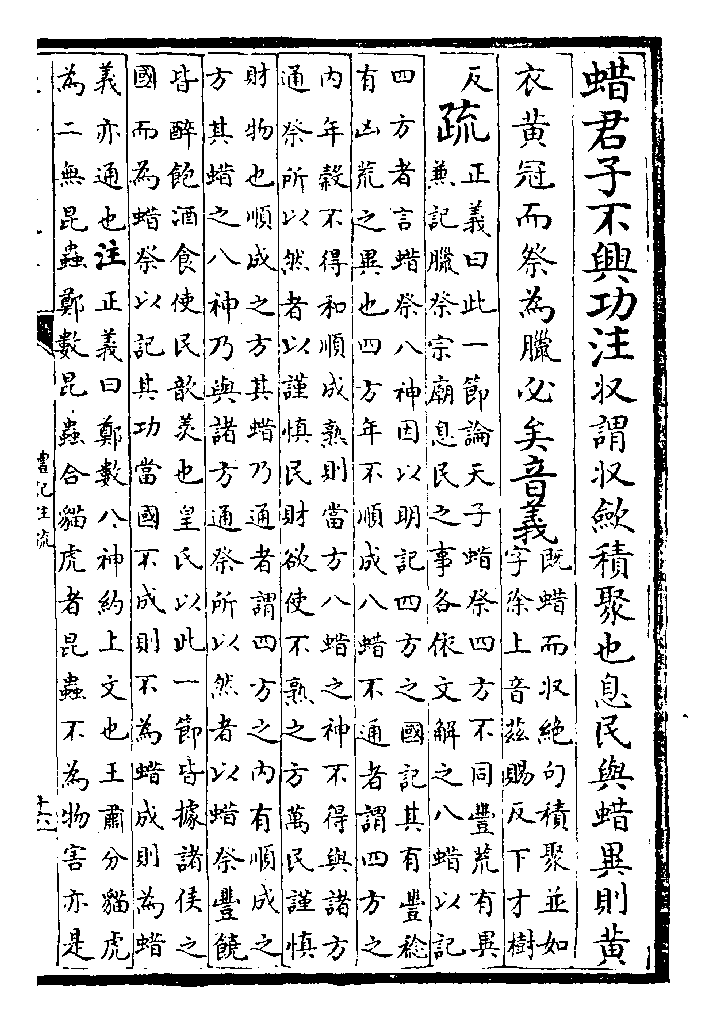 蜡君子不興功注収謂収歛積聚也息民與蜡異則黃
衣黃冠而祭為臘必矣音義
既蜡而収絶句積聚並如
字徐上音兹賜反下才樹
反疏
正義曰此一節論天子蜡祭四方不同豐荒有異
兼記臘祭宗廟息民之事各依文解之八蜡以記
四方者言蜡祭八神因以明記四方之國記其有豐稔
有凶荒之異也四方年不順成八蜡不通者謂四方之
内年糓不得和順成熟則當方八蜡之神不得與諸方
通祭所以然者以謹慎民財欲使不熟之方萬民謹慎
財物也順成之方其蜡乃通者謂四方之内有順成之
方其蜡之八神乃與諸方通祭所以然者以蜡祭豐饒
皆醉飽酒食使民歆羡也皇氏以此一節皆據諸侯之
國而為蜡祭以記其功當國不成則不為蜡成則為蜡
義亦通也注正義曰鄭數八神約上文也王肅分貓虎
為二無昆蟲鄭數昆蟲合貓虎者昆蟲不為物害亦是
禮記注疏
十六